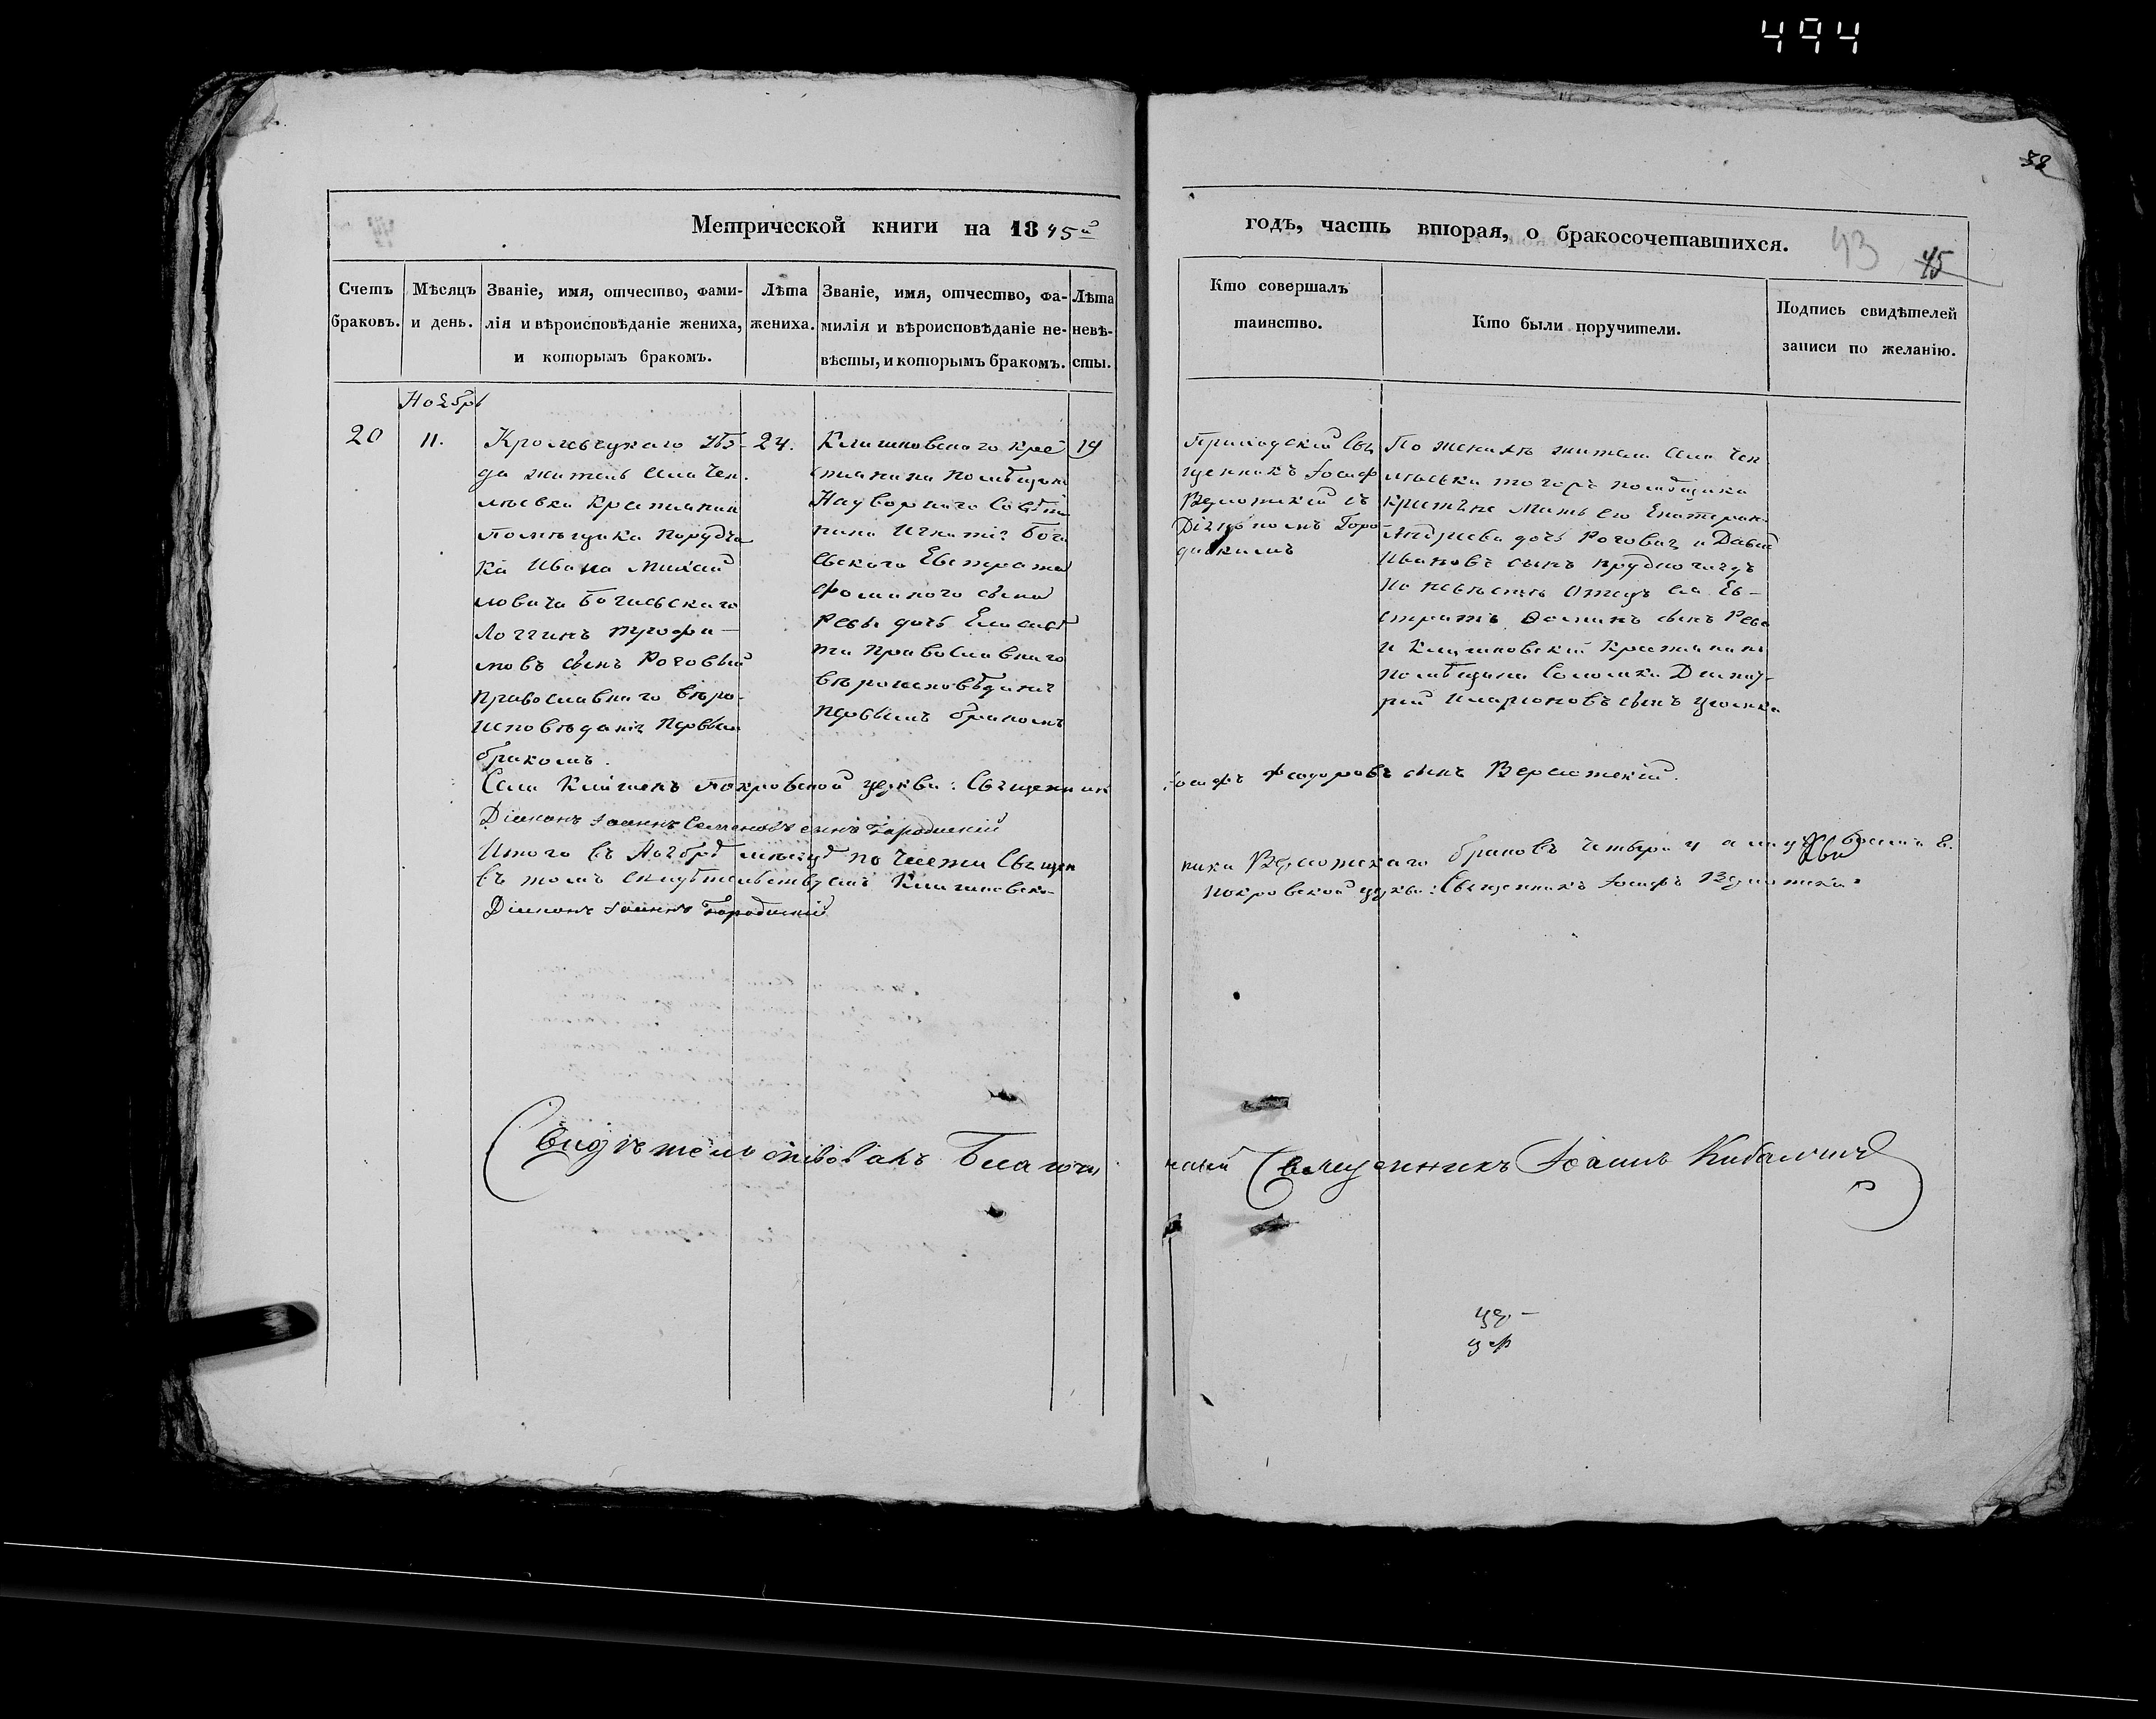 494
38
Метрической книги на 1845й
годъ, часть вторая, о бракосочетавшихся.
43
45
Счетъ браковъ.
Мѣсяцъ и день.
Званіе, имя, отчество, фами-
лія и вѣроисповѣданіе жениха,
и которымъ бракомъ.
Лѣта
жениха.
Званіе, имя, отчество, фа-
милія и вѣроисповѣданіе не-
вѣсты, и которымъ бракомъ.
Лѣта
невѣ-
сты.
Кто совершалъ
таинство.
Кто были поручители.
Подпись свидѣтелей
записи по желанію.
Ноября
20
11.
Кролевецкаго уѣз-
да житель села
крестьянин
помѣщика Поруч
ка Ивана Михай
ловича
Логгинъ
мовъ сынъ Роговый
православнаго вѣро-
исповѣданія первым
бракомъ.
24.
Клишковского кре
стьянина помѣщика
Надворнаго Совѣт
ника Игнатія
Евстратія
Фомина сына
Ревы дочь Елисаве
та православнаго
вѣроисповѣданія
первымъ бракомъ
19
Приходскій Свя
щенникъ Іосиф
съ
Діакономъ Горо
дискимъ
По женихѣ жители села
того же помѣщика
Мать его Екатерина
Андреева дочь и Давид
Ивановъ сынъ
По невѣстѣ Отецъ ея Ев-
стратій Фоминъ сынъ Рева
и Клишковскій крестьянинъ
помѣщика Соломки Дмит-
рій Иларіоновъ сынъ
Села Клишекъ Покровской церкви: Священник
Іосифъ Федоровъ сынъ
Діаконъ Іоаннъ Семеновъ сынъ Городискій
Итого въ Ноябрѣ мѣсяцѣ по счети Священ
ника браковъ четыри 4 а лицъ восемь 8.
въ томъ свидѣтельствуемъ Клишковско-
Покровской церкви: Священникъ Іосифъ
Діаконъ Іоаннъ Городискій
Свидѣтельствовалъ Благочи
нный Священникъ Іоаннъ Кибальчичъ